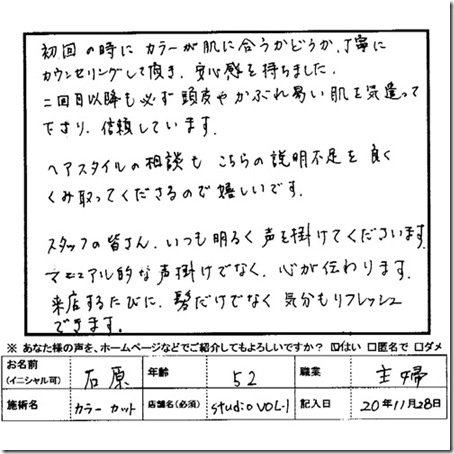 初回の時に カラーが肌に合うかどうか、丁寧に
カウンセリングして頂き、安心感を持ちました。
二回目以降も必ず頭皮やかぶれ易い肌を気遣って
下さり、信頼しています。
ヘアスタイルの相談も こちらの説明不足を良く
くみ取ってくださるので嬉しいです。
スタッフの皆さん、いつも明るく声を掛けてくださいます。
マニュアル的な声掛けでなく、心が伝わります。
来店するたびに、髪だけでなく 気分もリフレッシュ
できます。
※ あなた様の声を、ホームページなどでご紹介してもよろしいですか？ ☑はい □匿名で □ダメ
お名前(イニシャル可) 石原 年齢 52 職業 主婦
施術名 カラー カット 店舗名(必須) studio VOL.1 記入日 20年11月28日